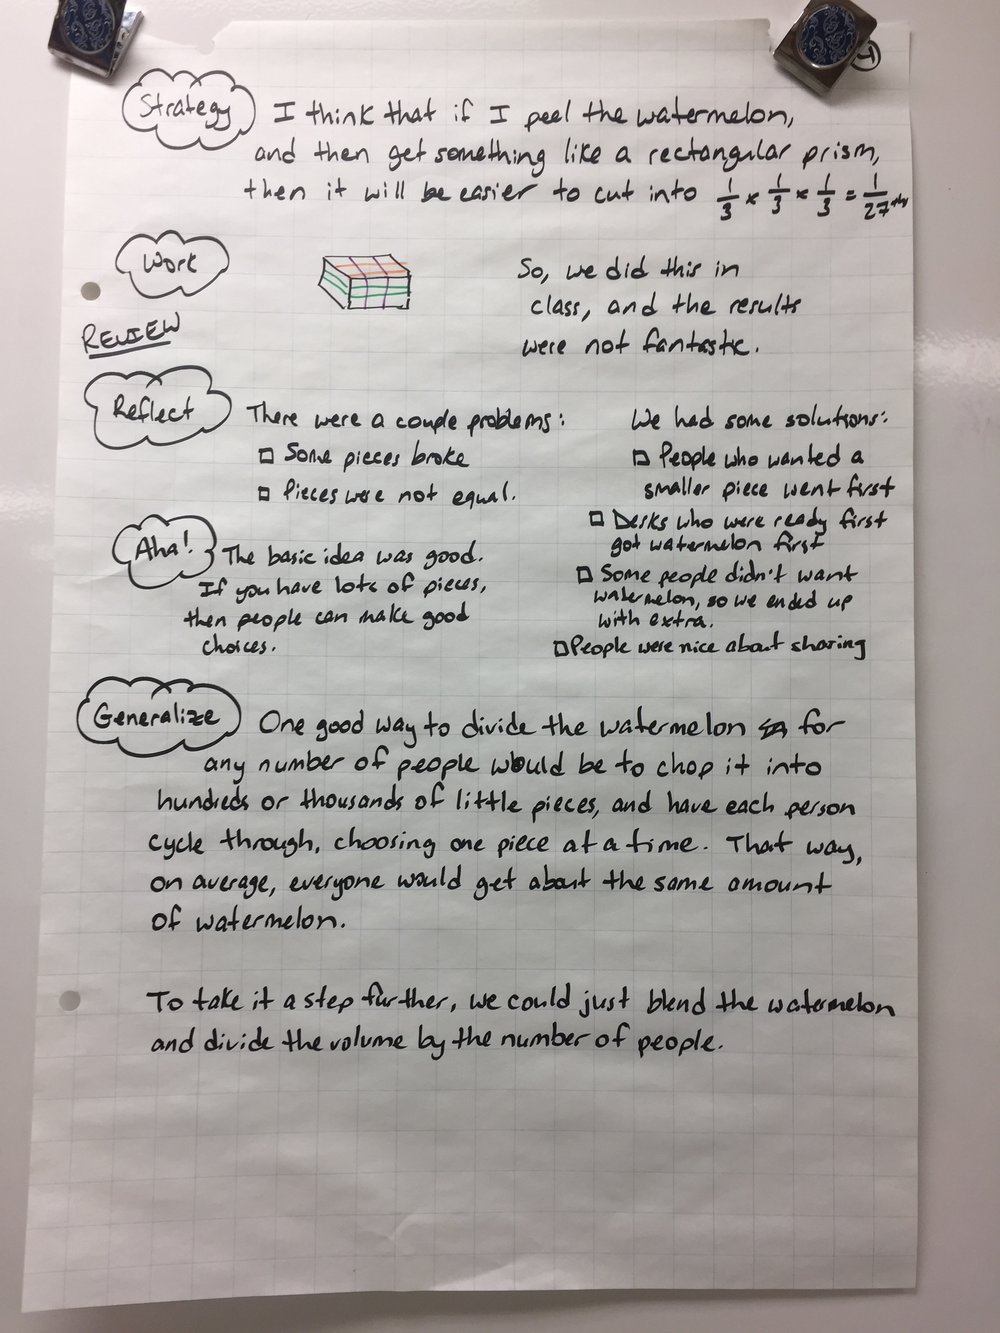 4
Strategy I think that if I peel the watermelon,
and then get something like a rectangular prism,
then it will be easier to cut into 1/3 × 1/3 × 1/3 = 1/27ths
Work
So, we did this in
class, and the results
were not fantastic.
REVIEW
Reflect There were a couple problems:
□ Some pieces broke
□ Pieces were not equal.
We had some solutions:
□ People who wanted a
smaller piece went first
□ Desks who were ready first
got watermelon first
□ Some people didn't want
watermelon, so we ended up
with extra.
□ People were nice about sharing
Aha! The basic idea was good.
If you have lots of pieces,
then people can make good
choices.
Generalize One good way to divide the watermelon for
any number of people would be to chop it into
hundreds or thousands of little pieces, and have each person
cycle through, choosing one piece at a time. That way,
on average, everyone would get about the same amount
of watermelon.
To take it a step further, we could just blend the watermelon
and divide the volume by the number of people.